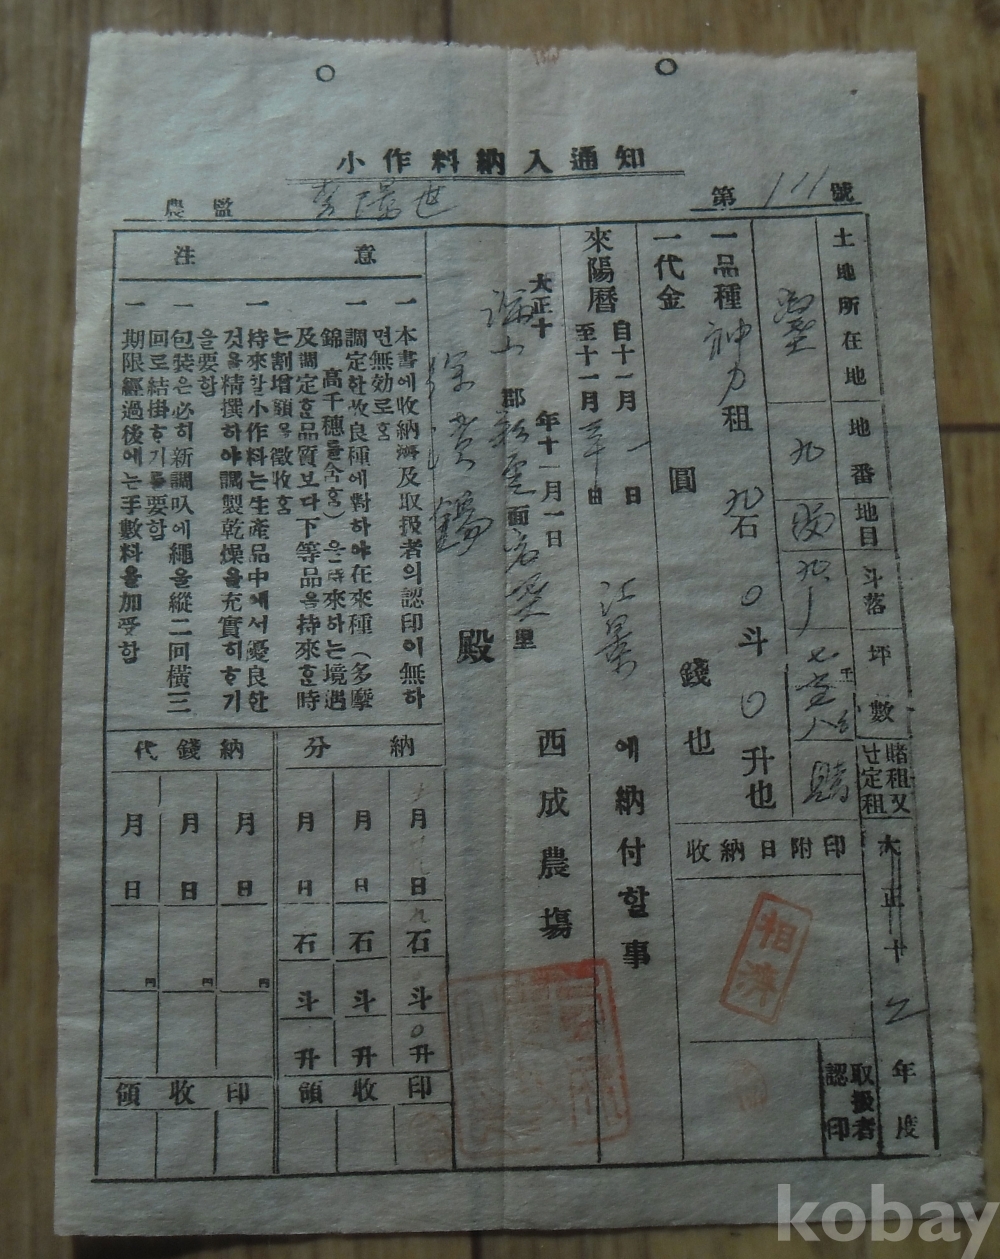 小作料納入通知
第111號
農監
土地所在地
地番
地目
斗落
坪數
賭租又난定租
大正十乙年度
九
一品種神力租九石0斗0升也
一代金 圓 錢也
收納日附印
相濟
取扱者認印
來陽曆自十一月一日至十一月 日 江景에納付할事
大正十 年十一月一日 西成農塲
郡 面 里
殿
注意
一 本書에收納濟及取扱者의認印이無하면無効로홈
一 調定한改良種에對하야在來種(多摩錦、高千穗를含홈)은持來하는境遇及調定호品質보다下等品을持來호時는割增額을徵收홈
一 持來할小作料는生產品中에서優良한것을精撰하야調製乾燥을充實히하기을要함
一 包装은必히新調叺에繩을縱二回橫三回로結掛하기를要함
一 期限經過後에는手數料을加受함
納分
月日九石斗0升
月日石斗升
月日石斗升
領收印
代錢納
月日円
月日円
月日円
領收印
kobay